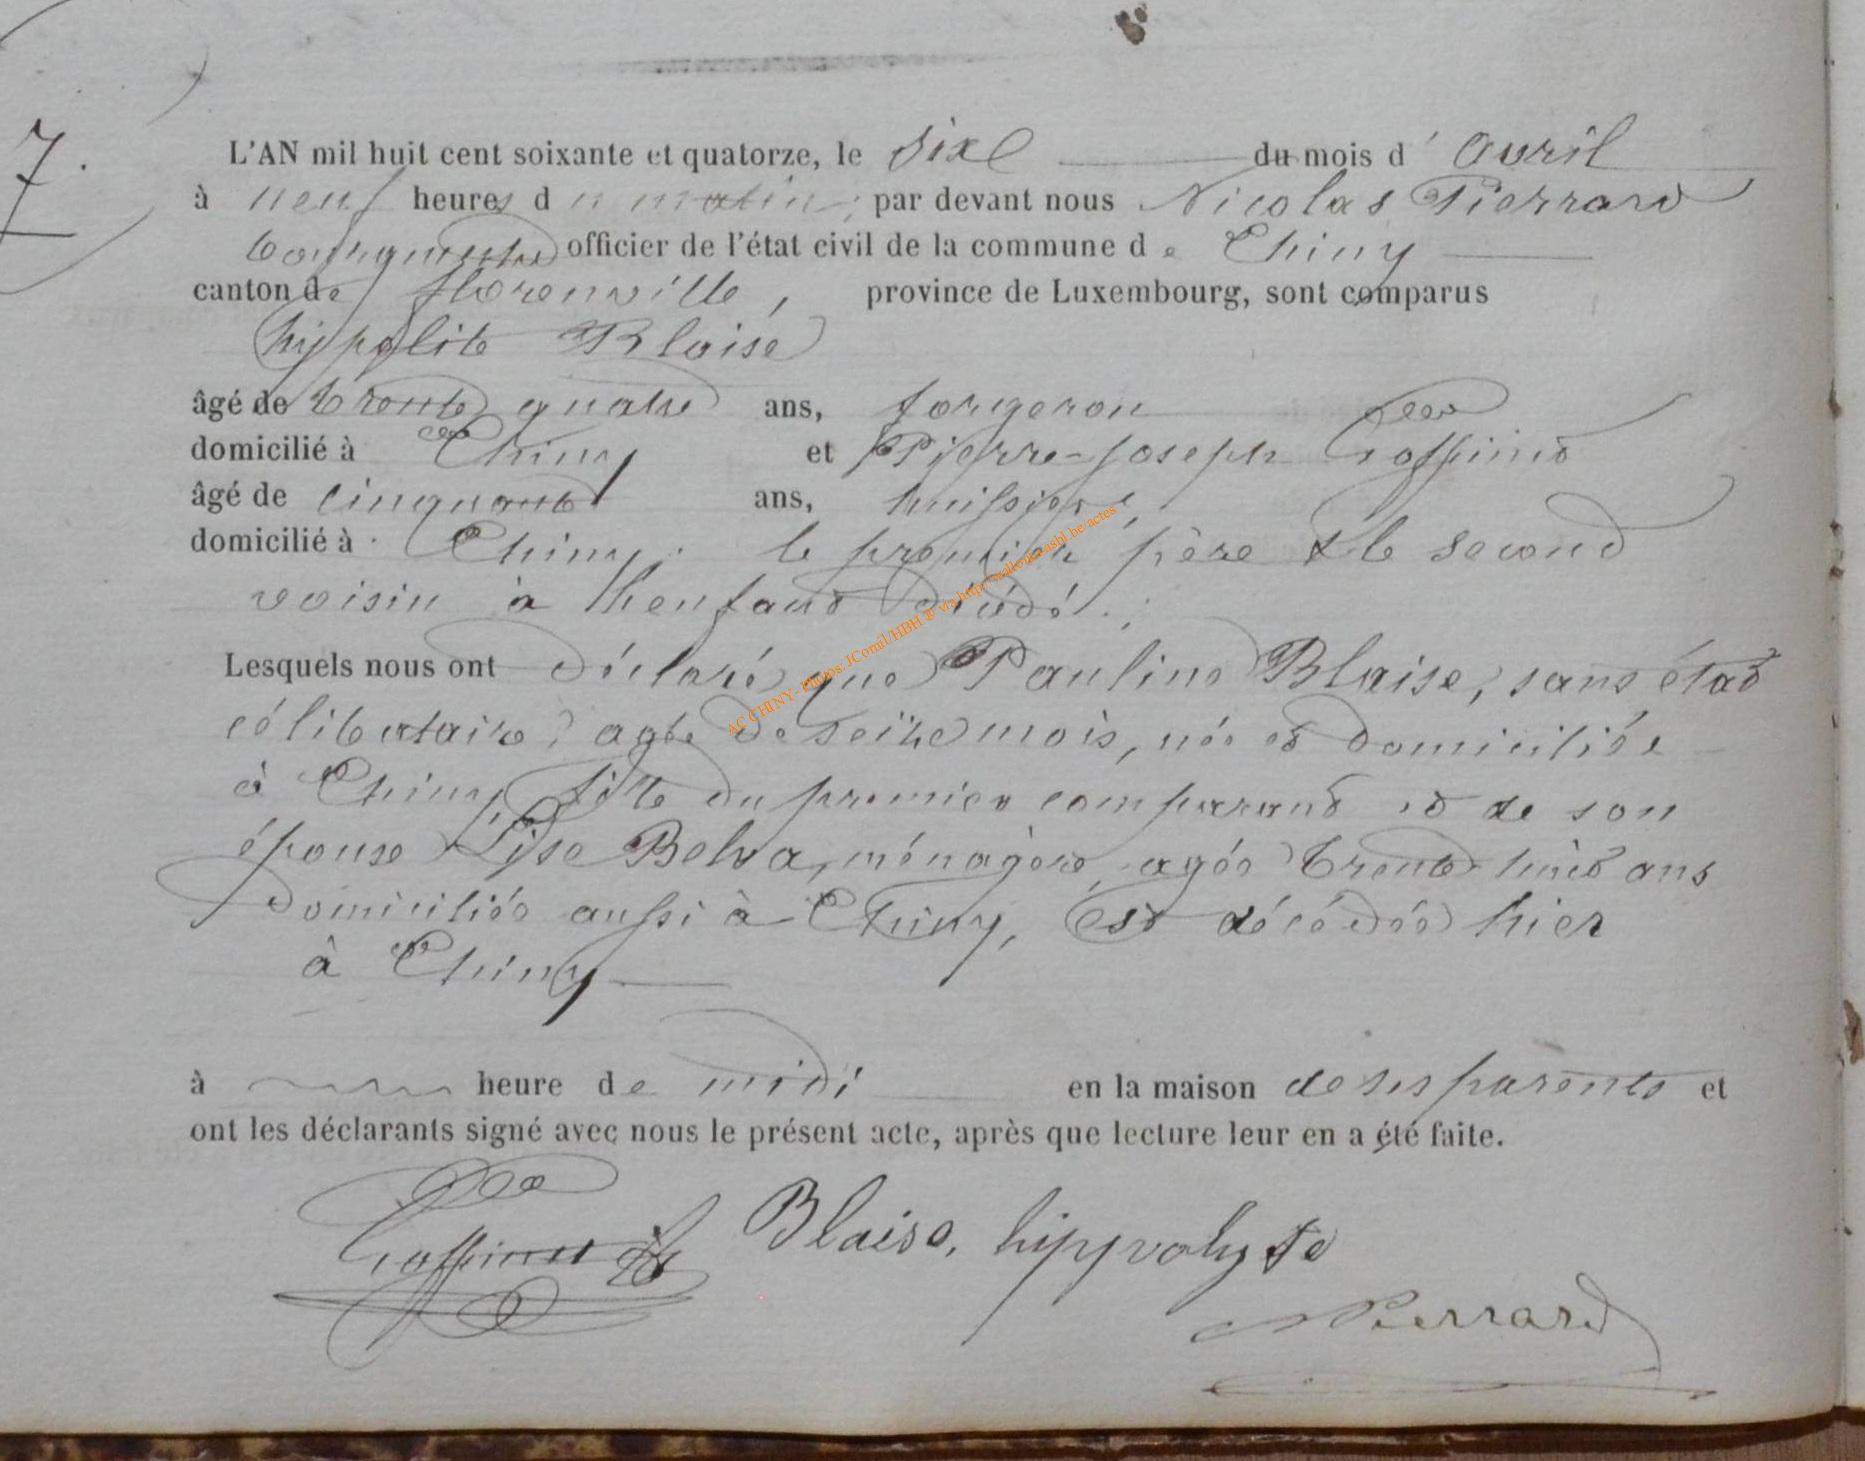 7.
L'AN mil huit cent soixante et quatorze, le six du mois d' avril
à neuf heures du matin, par devant nous Nicolas Pierrard
bourgmestre officier de l'état civil de la commune de Chiny
canton de florenville, province de Luxembourg, sont comparus
hyppolite Blaise
âgé de trente quatre ans, forgeron
domicilié à Chiny et Pierre-Joseph Goffinet
âgé de cinquante ans, huissier,
domicilié à Chiny. le premier père & le second
voisin à l'enfant décédé.
Lesquels nous ont déclaré que Pauline Blaise, sans état
célibataire, agée de seize mois, née et domiciliée
à Chiny, fille du premier comparant et de son
épouse Lise Belva, ménagère, agée trente huit ans
domiciliée aussi à Chiny, Est décédée hier
à Chiny
à heure de midi en la maison de ses parents et
ont les déclarants signé avec nous le présent acte, après que lecture leur en a été faite.
Goffinet Blaise, hippolyte
NPierrard
AC CHINY - Photos: JComil/HBH @ via http://walloniaasbl.be/actes